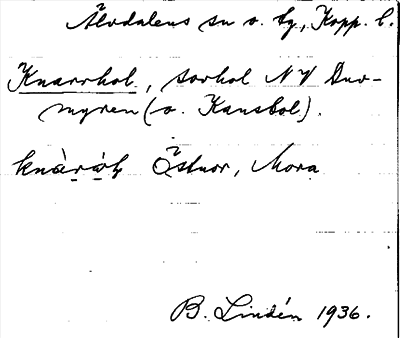 Älvdalens sn o. tg, Kopp. l.
Knarrhol., torhol NV Dur-
myren (o. Kansbol.).
knàràh Östnor, Mora
B. Lindén 1936.